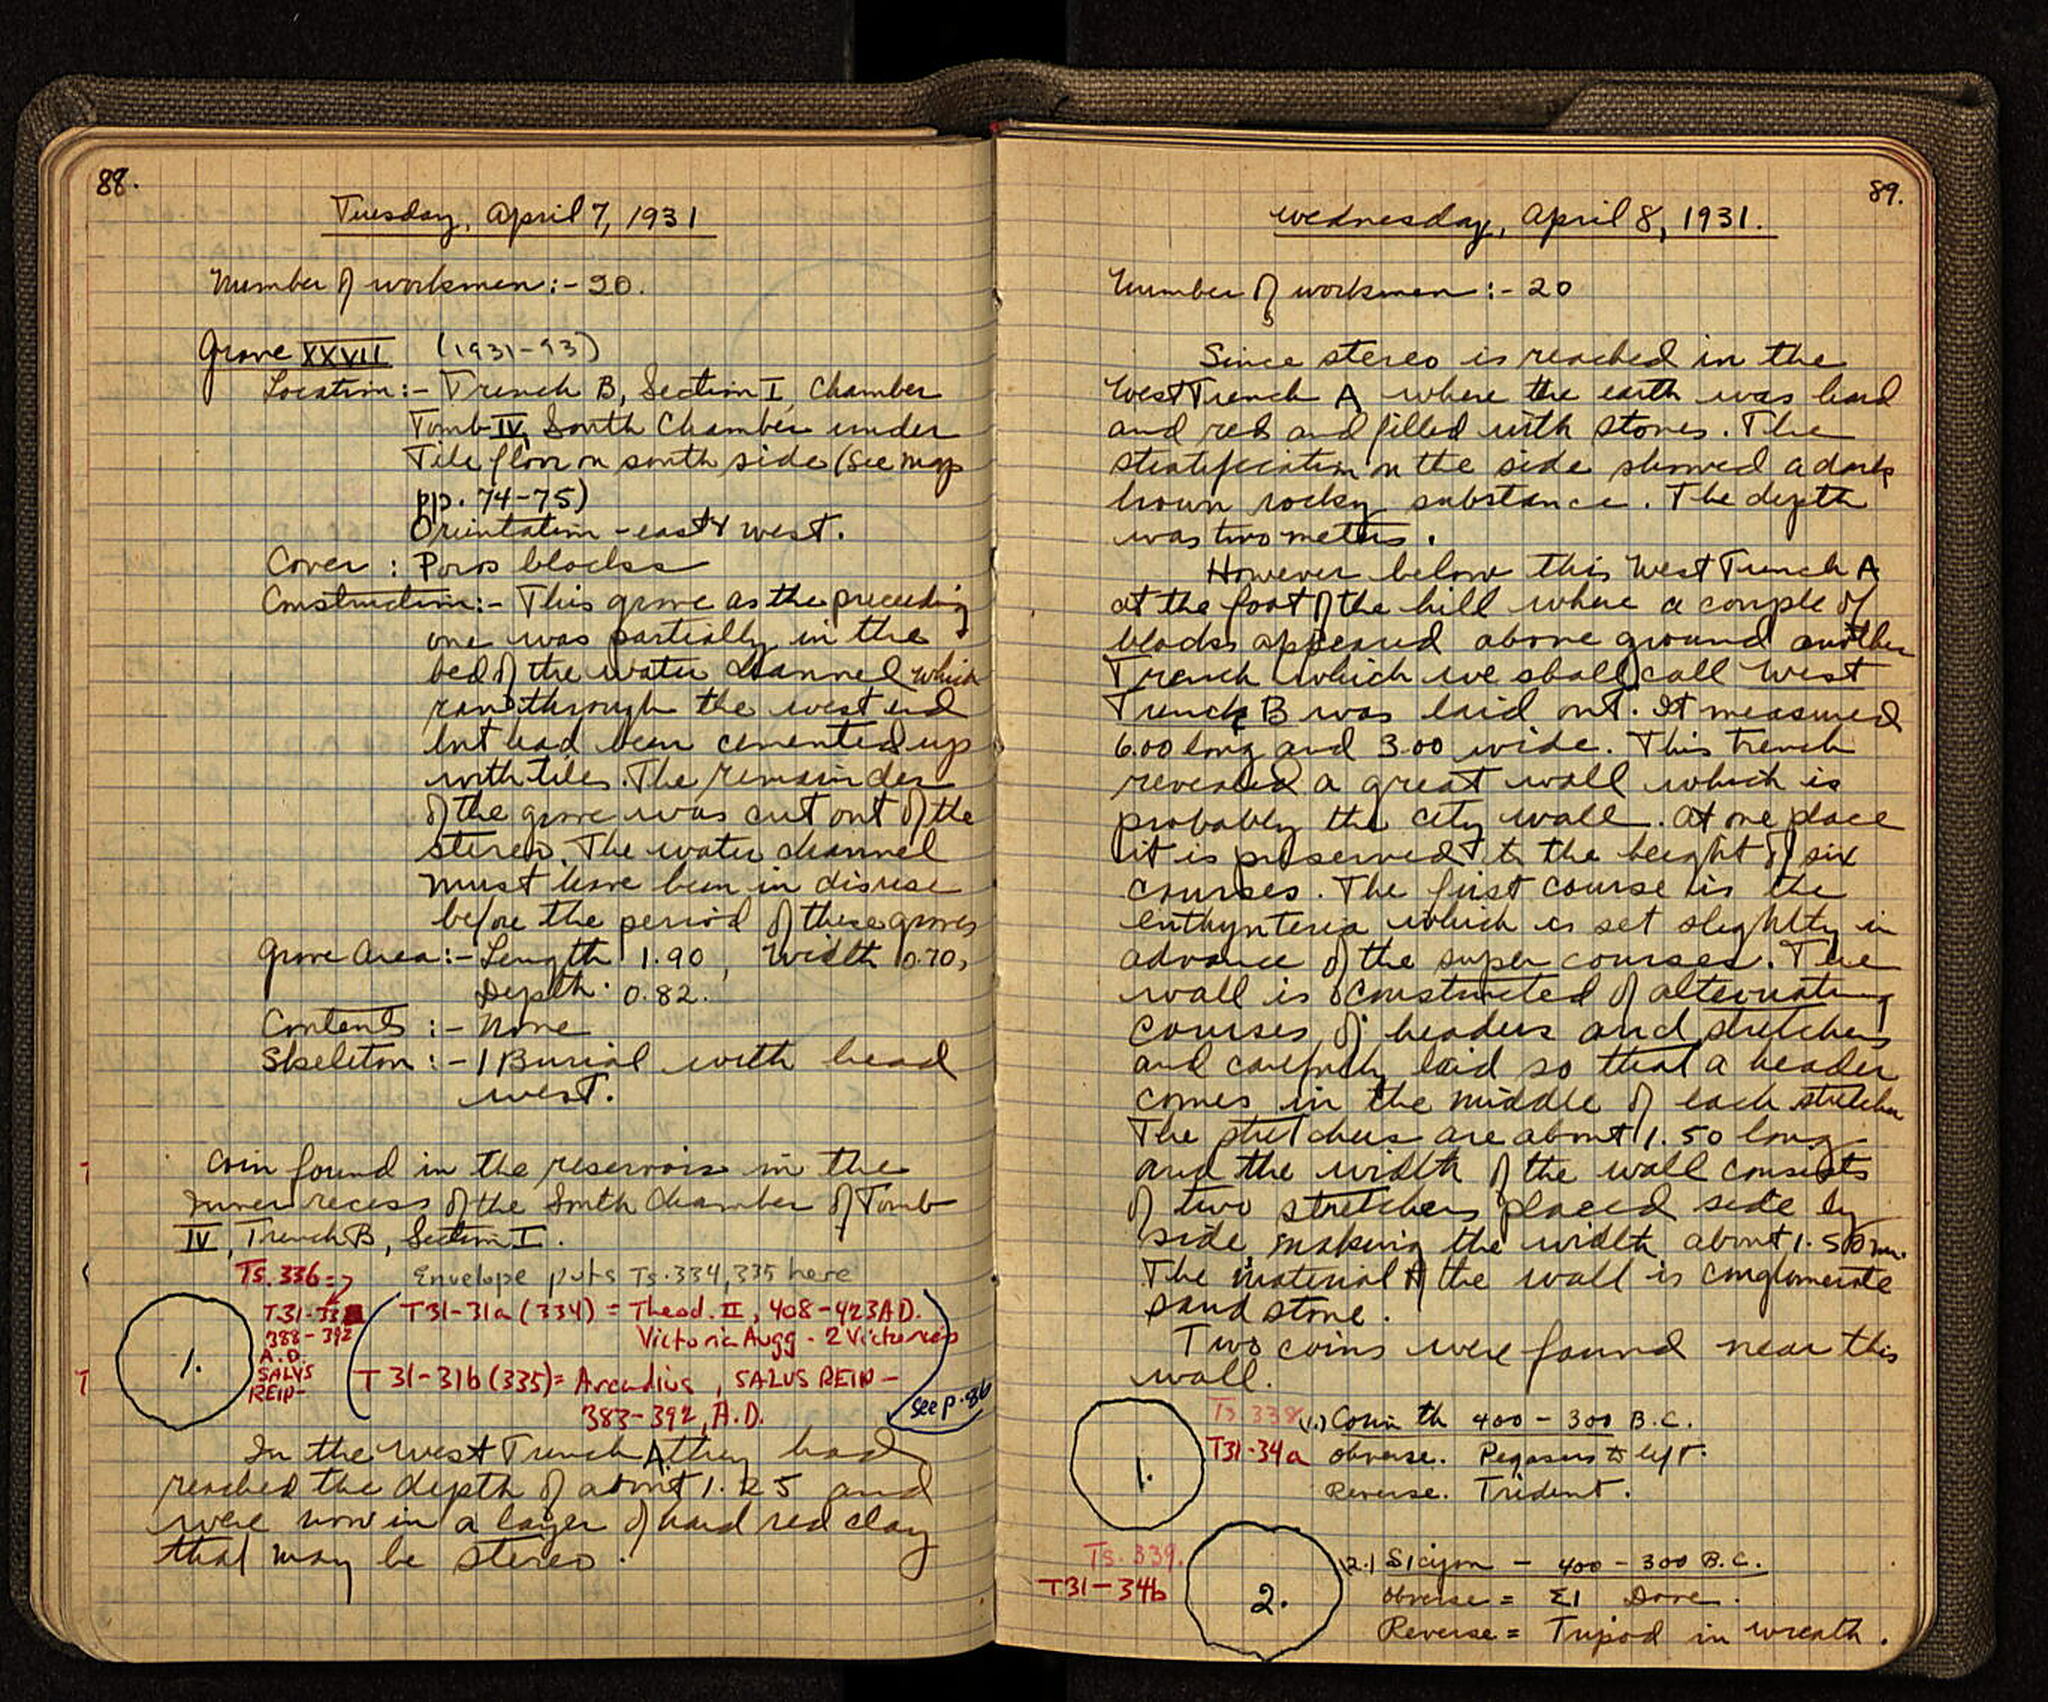 88.
Tuesday, April 7, 1931
Number of workmen :- 20.
Grave XXVII (1931-93)
Location :- Trench B, Section I, Chamber
Tomb IV, South Chamber under
Tile floor on south side (See map
pp. 74-75)
Orientation - east & west.
Cover : Poros blocks
Construction :- This grave as the preceeding
one was partially in the
bed of the water channel which
ran through the west end
but had been cemented up
with tiles. The remainder
of the grave was cut out of the
stereo. The water channel
must have been in disuse
before the period of these graves
Grave Area :- Length 1.90, Width 0.70,
Depth. 0.82.
Contents :- None
Skeleton :- 1 Burial with head
west.
Coin found in the reservoir in the
inner recess of the South Chamber of Tomb
IV, Trench B, Section I.
Ts. 336 = Envelope puts Ts. 334, 335 here
1.
T31-33
388-392
A.D.
SALVS
REIP-
T31-31a (334) = Theod. II, 408-423 A.D.
Victoria Augg - 2 Victories
T31-31b (335) = Arcadius, SALUS REIP-
383-392, A.D.
See p. 86
In the West Trench A they had
reached the depth of about 1.25 and
were now in a layer of hard red clay
that may be stereo.
89.
Wednesday, April 8, 1931.
Number of workmen :- 20
Since stereo is reached in the
West Trench A where the earth was hard
and red and filled with stones. The
stratification on the side showed a dark
brown rocky substance. The depth
was two meters.
However below this West Trench A
at the foot of the hill where a couple of
blocks appeared above ground another
Trench which we shall call West
Trench B was laid out. It measured
6.00 long and 3.00 wide. This trench
revealed a great wall which is
probably the city wall. At one place
it is preserved to the height of six
courses. The first course is the
euthynteria which is set slightly in
advance of the super courses. The
wall is constructed of alternating
courses of headers and stretchers
and carefully laid so that a header
comes in the middle of each stretcher
The stretchers are about 1.50 long
and the width of the wall consists
of two stretchers placed side by
side, making the width about 1.50 m.
The material of the wall is conglomerate
sand stone.
Two coins were found near this
wall.
1.
Ts 338
T31-34a
(1.) Corinth 400-300 B.C.
Obverse. Pegasus to left.
Reverse. Trident.
Ts. 339.
T31-34b
2.
(2.) Sicyon - 400-300 B.C.
Obverse = ΣΙ Dove.
Reverse = Tripod in wreath.